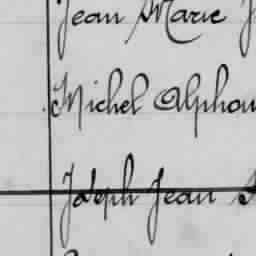 Jean Marie
Michel Alphon
Joseph Jean